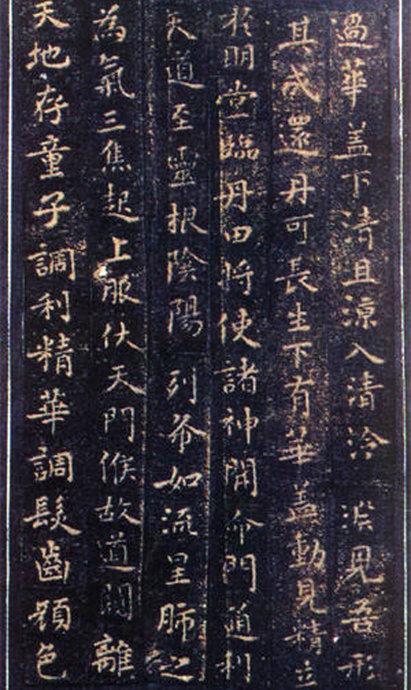 過華盖下清且涼入清泠淵見吾形
其成還丹可長生下有華盖動見精立
於明堂臨丹田將使諸神開命門通利
天道至靈根陰陽列布如流星肺之
為氣三焦起上服伏天門候故道闚離
天地存童子調利精華調髮齒顏色